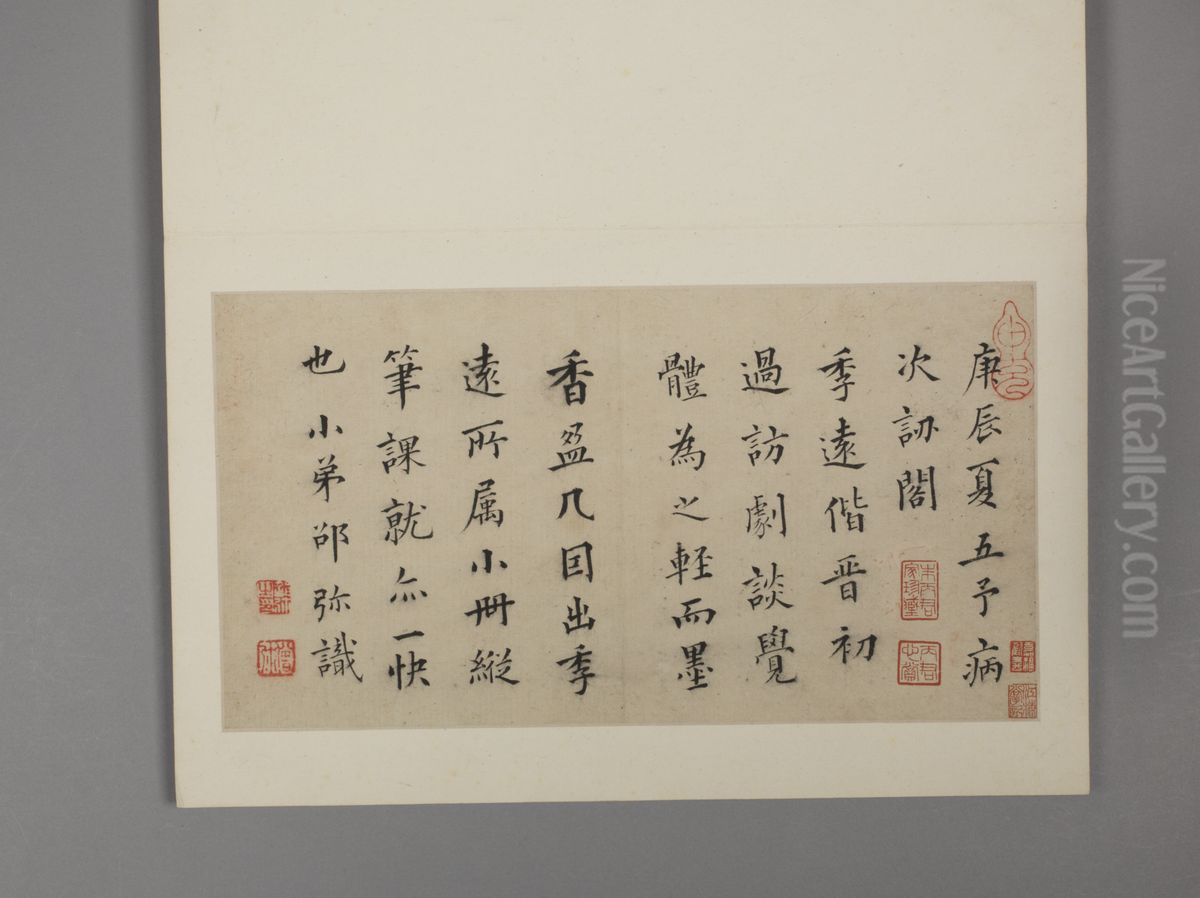 庚辰夏五予病
次訪閣
季遠偕晉初
過訪劇談覺
體為之軽而墨
香盈几因出季
遠所属小冊縱
筆課就亦一快
也小弟邵弥識
朱丙君
家珍重
NiceArtGallery.com